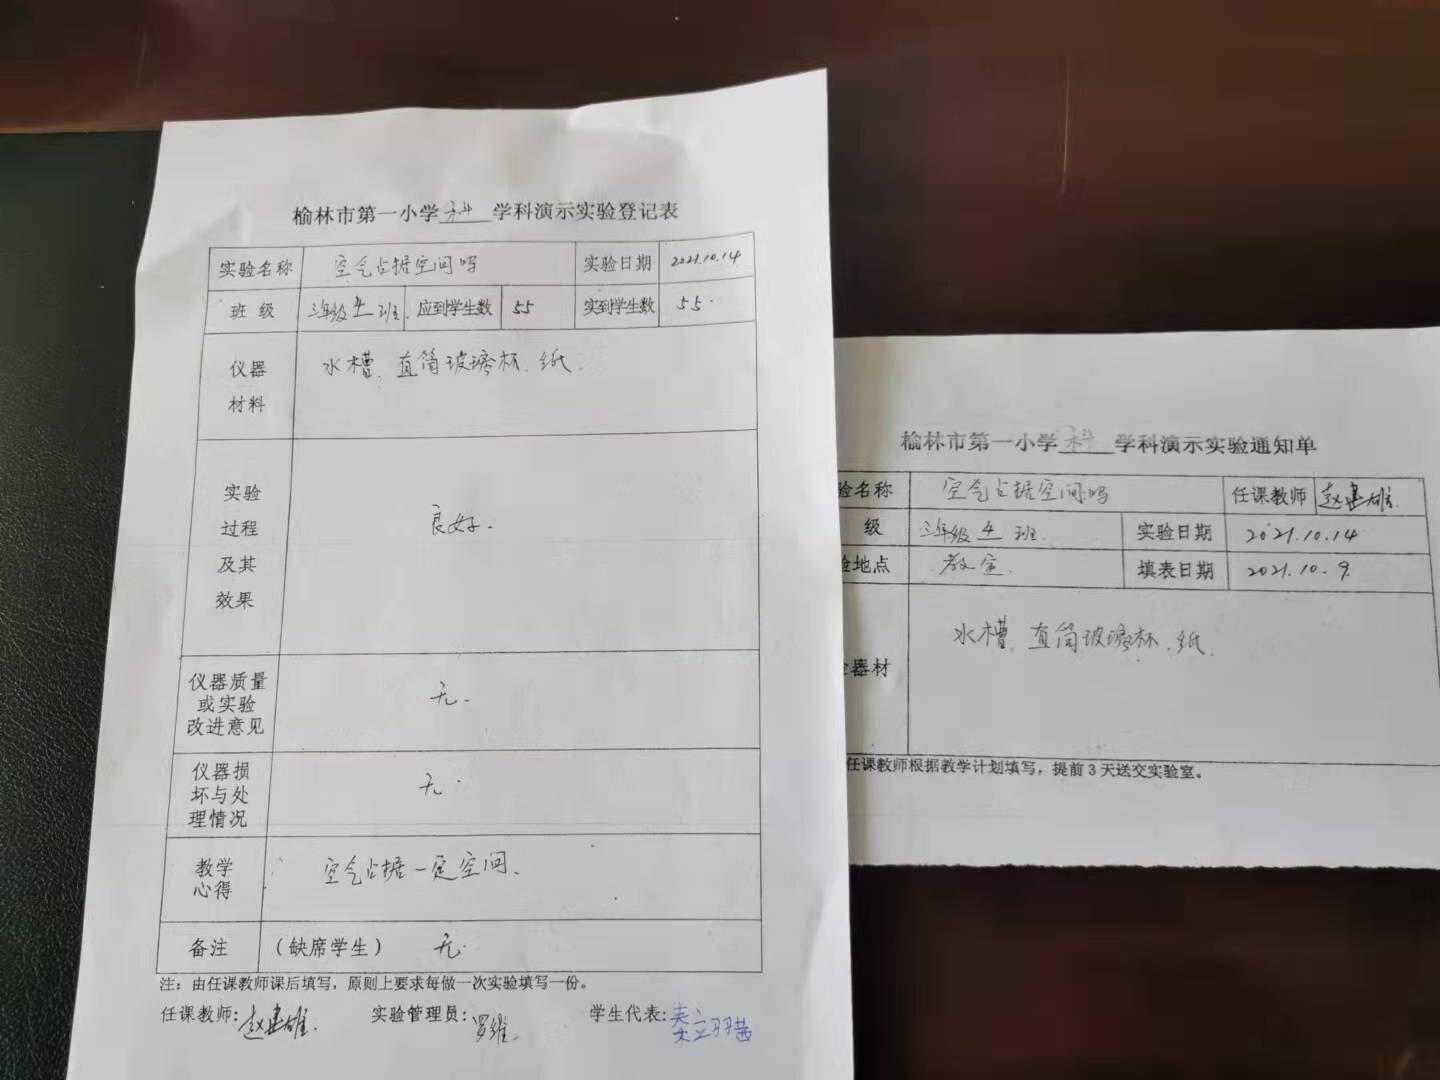 榆林市第一小学 科 学科演示实验登记表
实验名称 空气占据空间吗 实验日期 2021.10.14
班级 三年级 4 班. 应到学生数 55 实到学生数 55.
仪器 水槽. 直筒玻璃杯. 纸.
材料
实验
过程 良好.
及其
效果
仪器质量
或实验 无.
改进意见
仪器损
坏与处 无.
理情况
教学 空气占据一定空间.
心得
备注 (缺席学生) 无.
注：由任课教师课后填写，原则上要求每做一次实验填写一份。
任课教师: 赵建雄. 实验管理员: 罗维. 学生代表:
榆林市第一小学 科 学科演示实验通知单
验名称 空气占据空间吗 任课教师 赵建雄.
级 三年级 4 班. 实验日期 2021.10.14
验地点 教室. 填表日期 2021.10.9.
水槽. 直筒玻璃杯. 纸.
器材
任课教师根据教学计划填写，提前3天送交实验室。